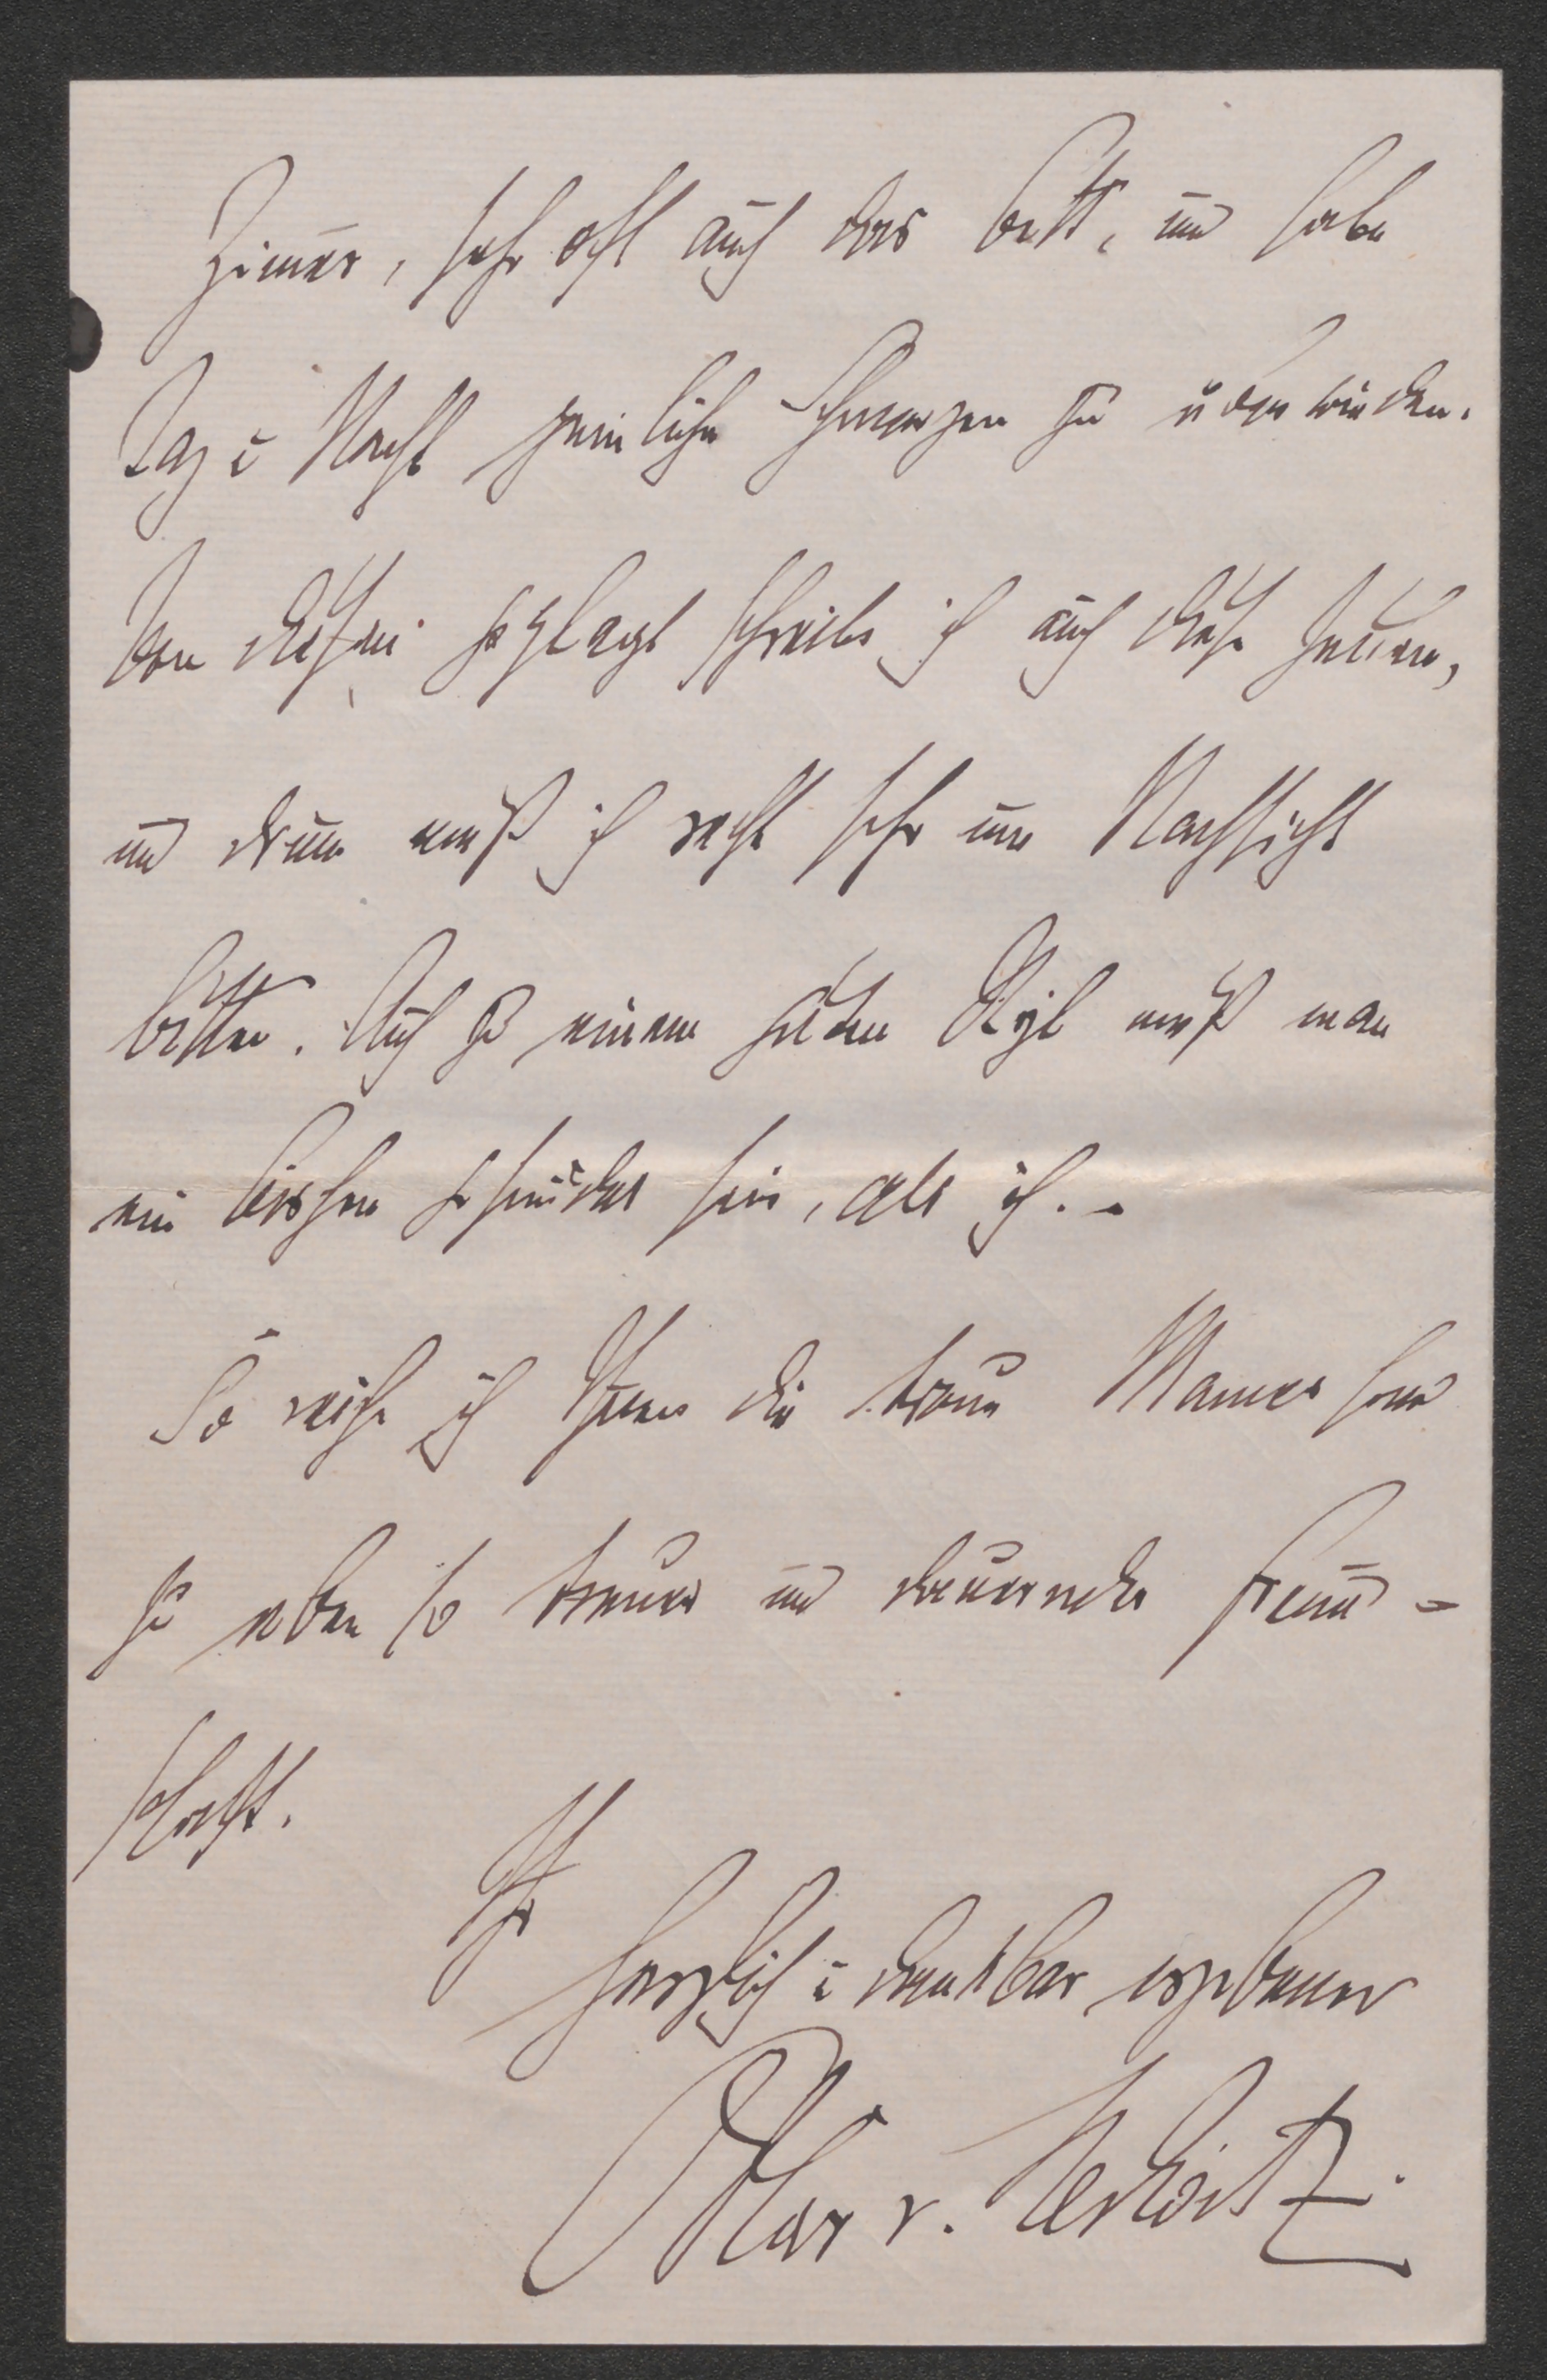 Zimer, sehr oft auch das Bett, und habe
Tag u Nacht peinliche Schmerzen zu überwinden.
Von diesen geplagt schreibe ich auch diese Zeilen,
und drum muß ich recht sehr um Nachsicht
bitten. Auch zu einem guten Styl muß man
ein bischen gesünder sein, als ich. –
So reiche ich Ihnen die treue Manneshand
zu eben so treuer und dauernder Freund-
schaft.
Ihr
herzlich u dankbar ergebener
Oskar v. Redwitz.